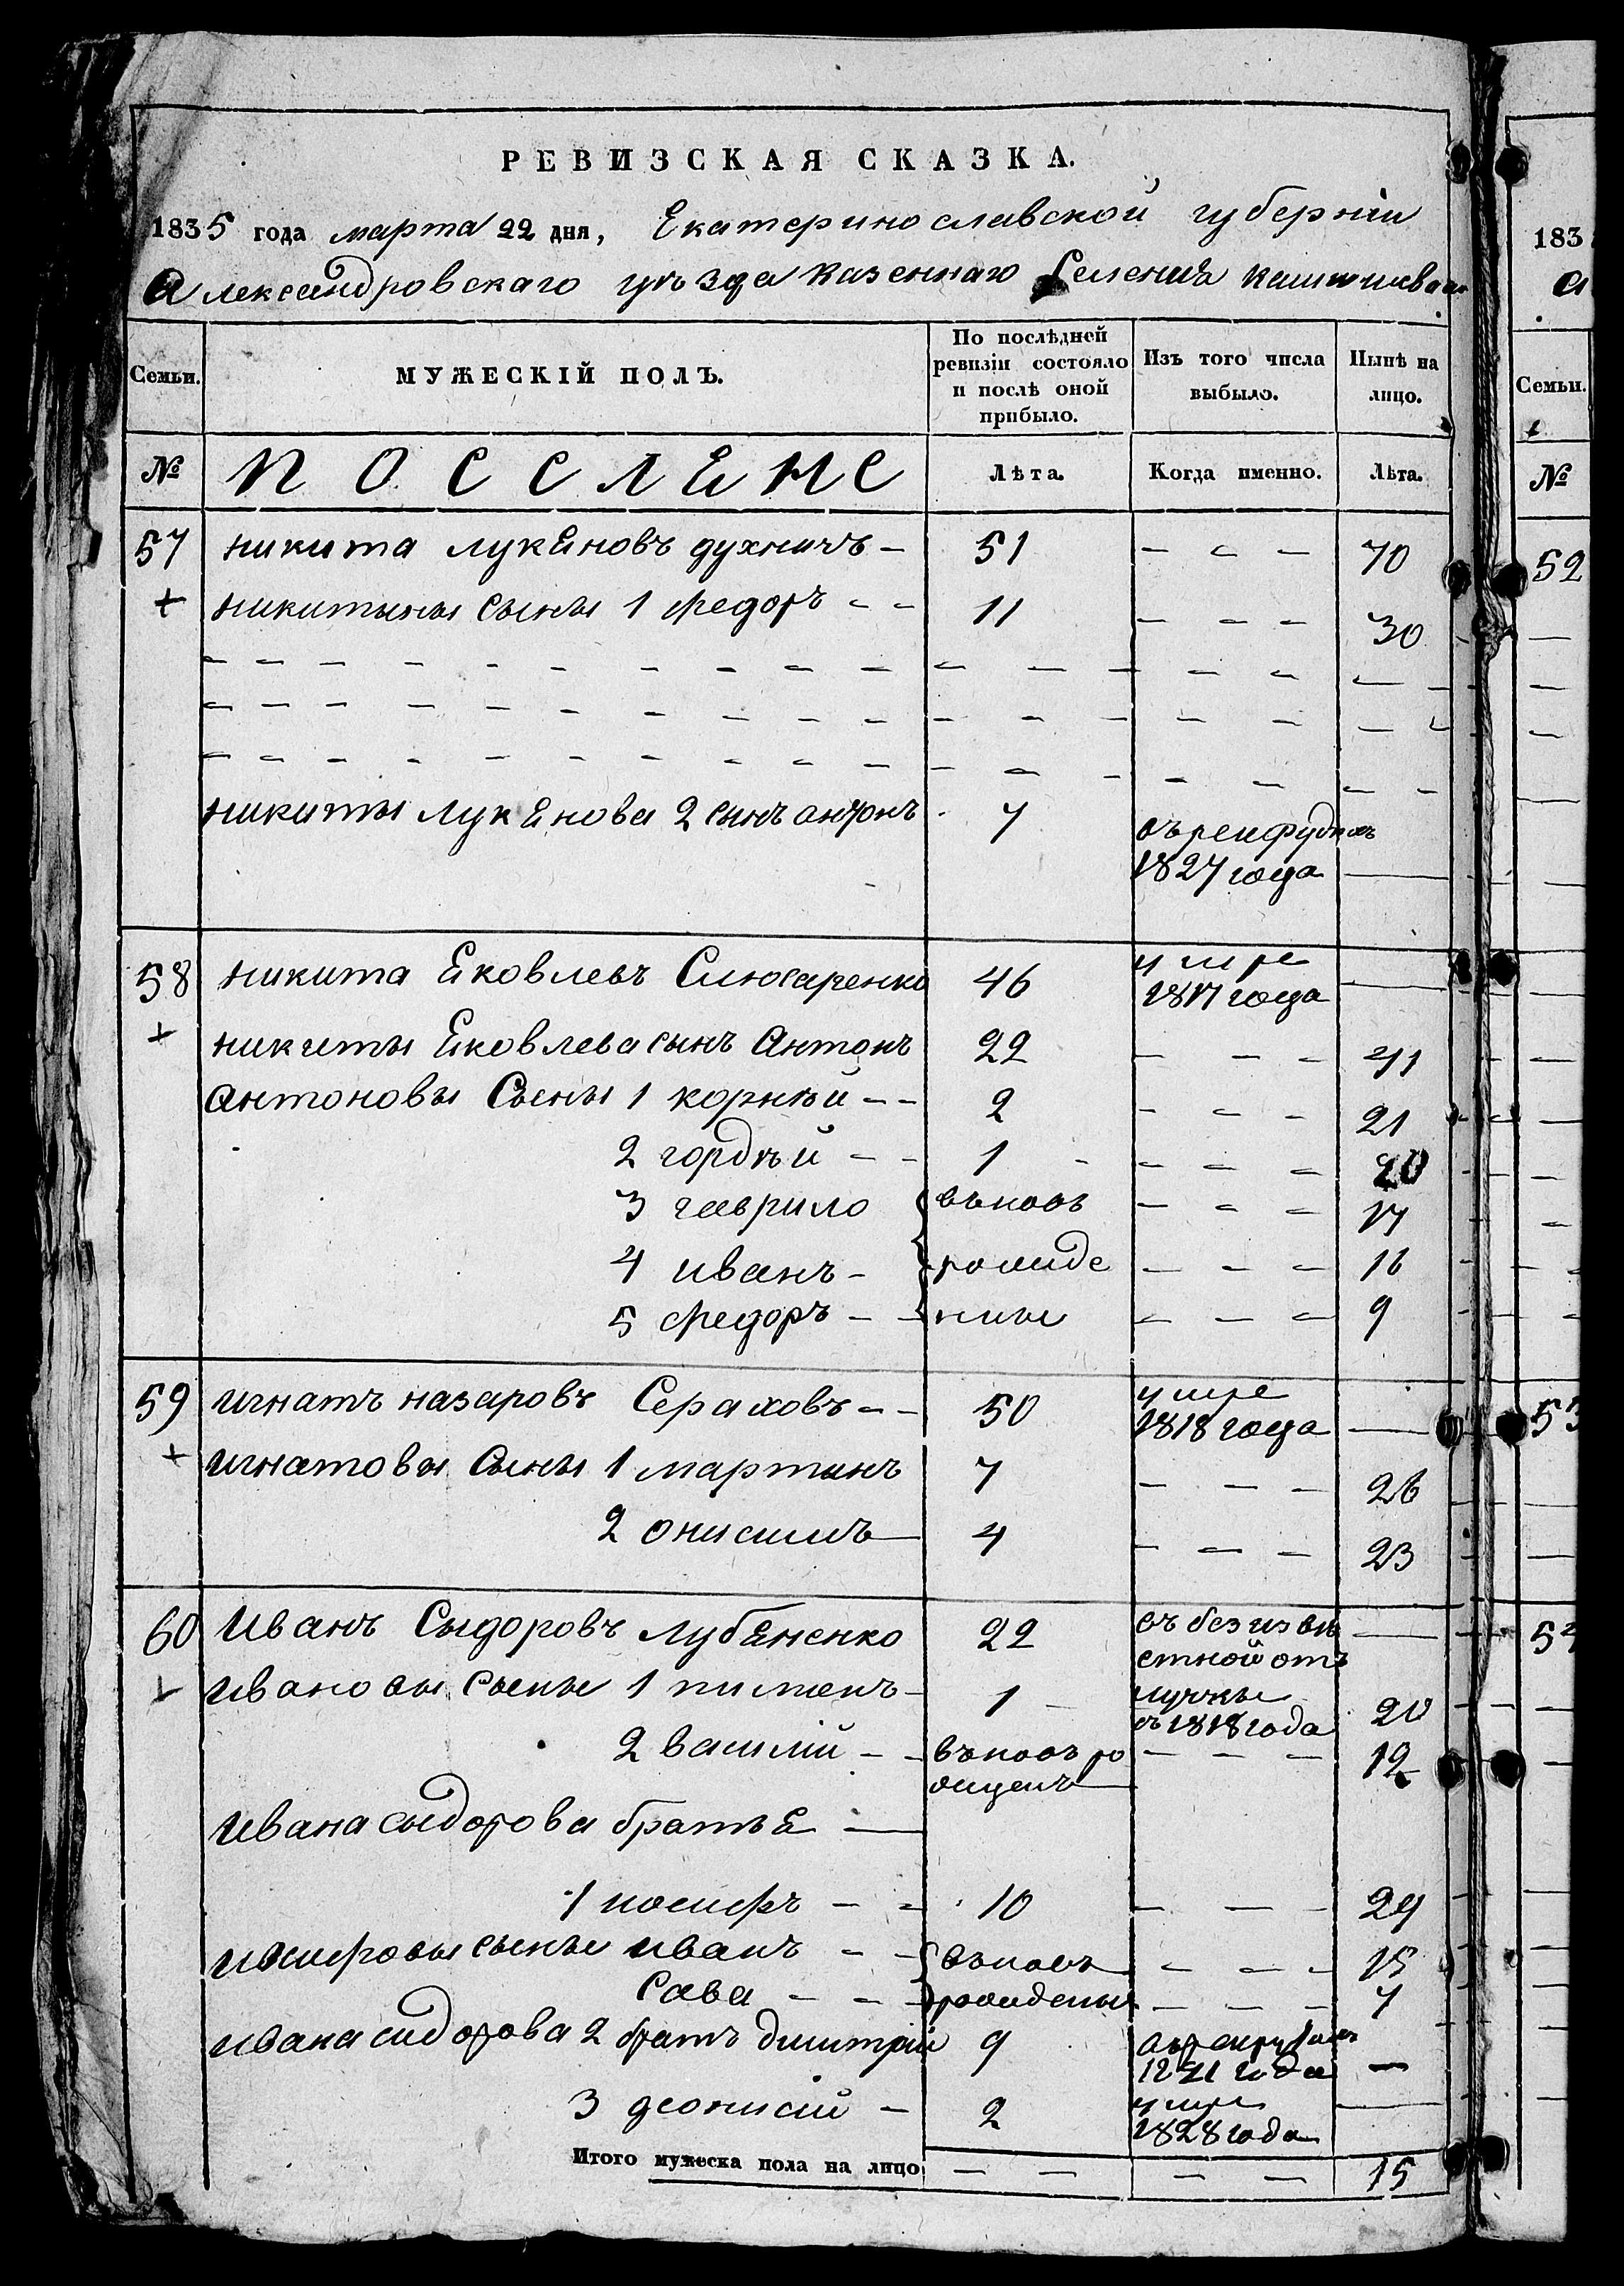 РЕВИЗСКАЯ СКАЗКА.
1835 года марта 22 дня, Екатеринославской губерніи
Александровскаго уѣзда казеннаго Селенія
Семьи.
МУЖЕСКІЙ ПОЛЪ.
По послѣдней ревизіи состояло и послѣ оной прибыло.
Изъ того числа выбыло.
Нынѣ на лицо.
№
ПОССЕЛЕНЕ
Лѣта.
Когда именно.
Лѣта.
57 никита лукеновъ духничъ 51 70
никитины сыны 1 федоръ 11 30
никиты лукенова 2 сынъ антонъ 7
1827 года
58 никита Ековлевъ Слюсаренко 46 умре
1817 года
никиты Ековлева сынъ Антонъ 22 41
антоновы Сыны 1 корнѣй 2 21
2 гордѣй 1 20
3 гаврило въновь 17
4 иванъ рожде 16
5 федоръ ные 9
59 игнатъ назаровъ Сераховъ 50 умре
1818 года
игнатовы Сыны 1 мартинъ 7 26
2 онисимъ 4 23
60 Иванъ Сыдоровъ лубененко 22 въ безизвѣ
стной от
лучкы
съ 1818 года
ивановы сыны 1 пименъ 1 20
2 василій въновь ро 12
жденъ
ивана сыдорова братье
1 иосифъ 10 29
иосифовы сыны иванъ въновь 15
Сава рожденые 7
ивана сидорова 2 братъ димитрій 9
1821 года
3 деонисій 2 умре
1828 года
Итого мужеска пола на лицо 15
183
Семьи.
№
52
53
54